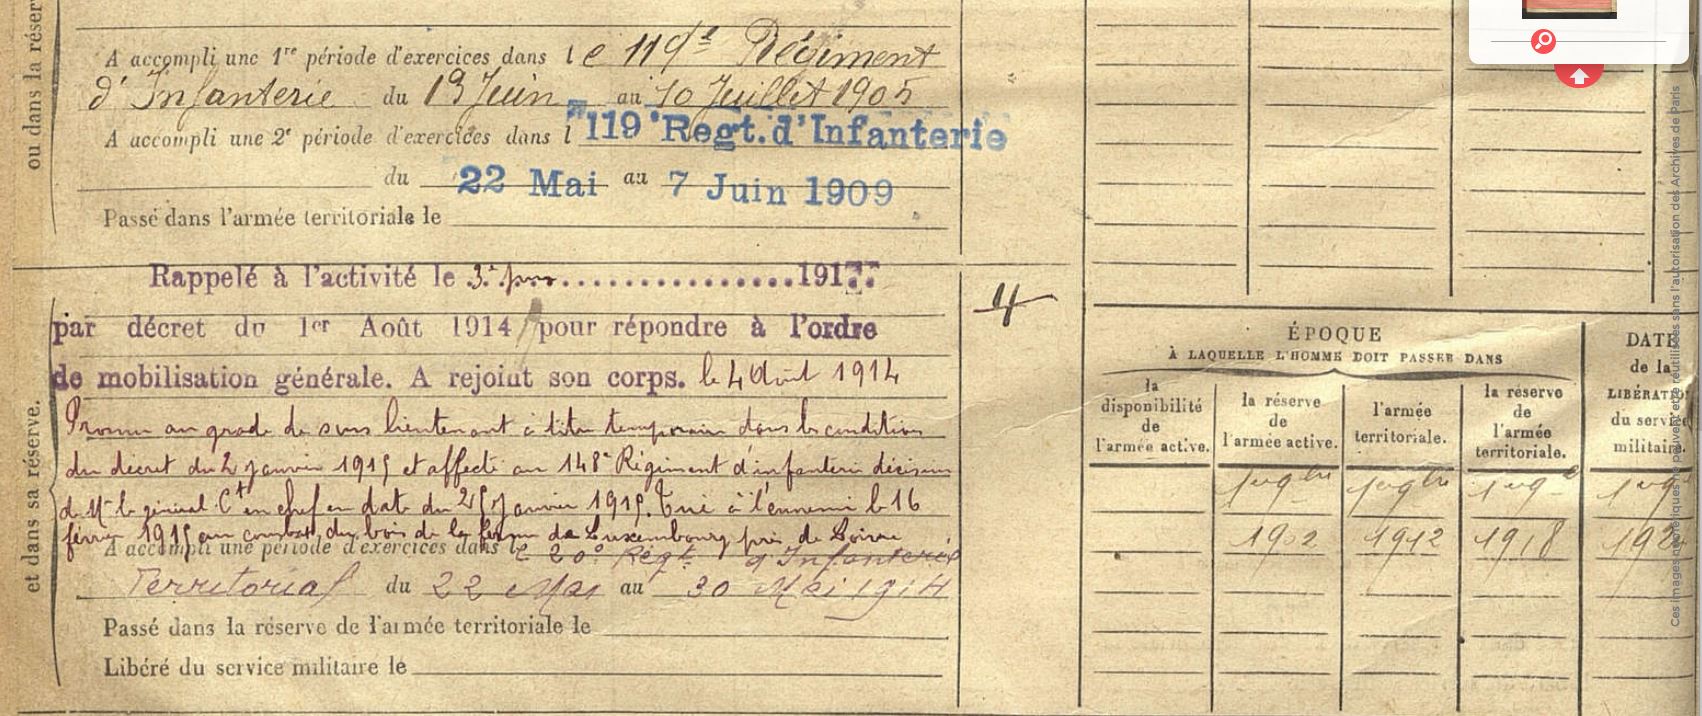 ou dans la réser
A accompli une 1re période d'exercices dans le 119e Régiment
d'Infanterie du 13 Juin au 10 Juillet 1905
A accompli une 2e période d'exercices dans l 119e Regt. d'Infanterie
du 22 Mai au 7 Juin 1909
Passé dans l'armée territoriale le
Rappelé à l'activité le 3e jour................191
par décret du 1er Août 1914 pour répondre à l'ordre
de mobilisation générale. A rejoint son corps. le 4 Août 1914
Promu au grade de sous lieutenant à titre temporaire dans les conditions
du décret du 2 janvier 1915 et affecté au 148e Régiment d'infanterie décision
de Mr le général Ct en chef en date du 25 janvier 1915. Tué à l'ennemi le 16
février 1915 au combat du bois de la ferme du Luxembourg près de Loivre
A accompli une période d'exercices dans le 20e Régt d'Infanterie
Territorial du 22 Mai au 30 Mai 1914
Passé dans la réserve de l'armée territoriale le
Libéré du service militaire le
et dans sa réserve.
4
ÉPOQUE
À LAQUELLE L'HOMME DOIT PASSER DANS
la
disponibilité
de
l'armée active.
la réserve
de
l'armée active.
l'armée
territoriale.
la réserve
de
l'armée
territoriale.
DATE
de la
LIBÉRATIO
du service
militaire.
1902
1912
1918
Ces images numériques ne peuvent être réutilisées sans l'autorisation des Archives de Paris